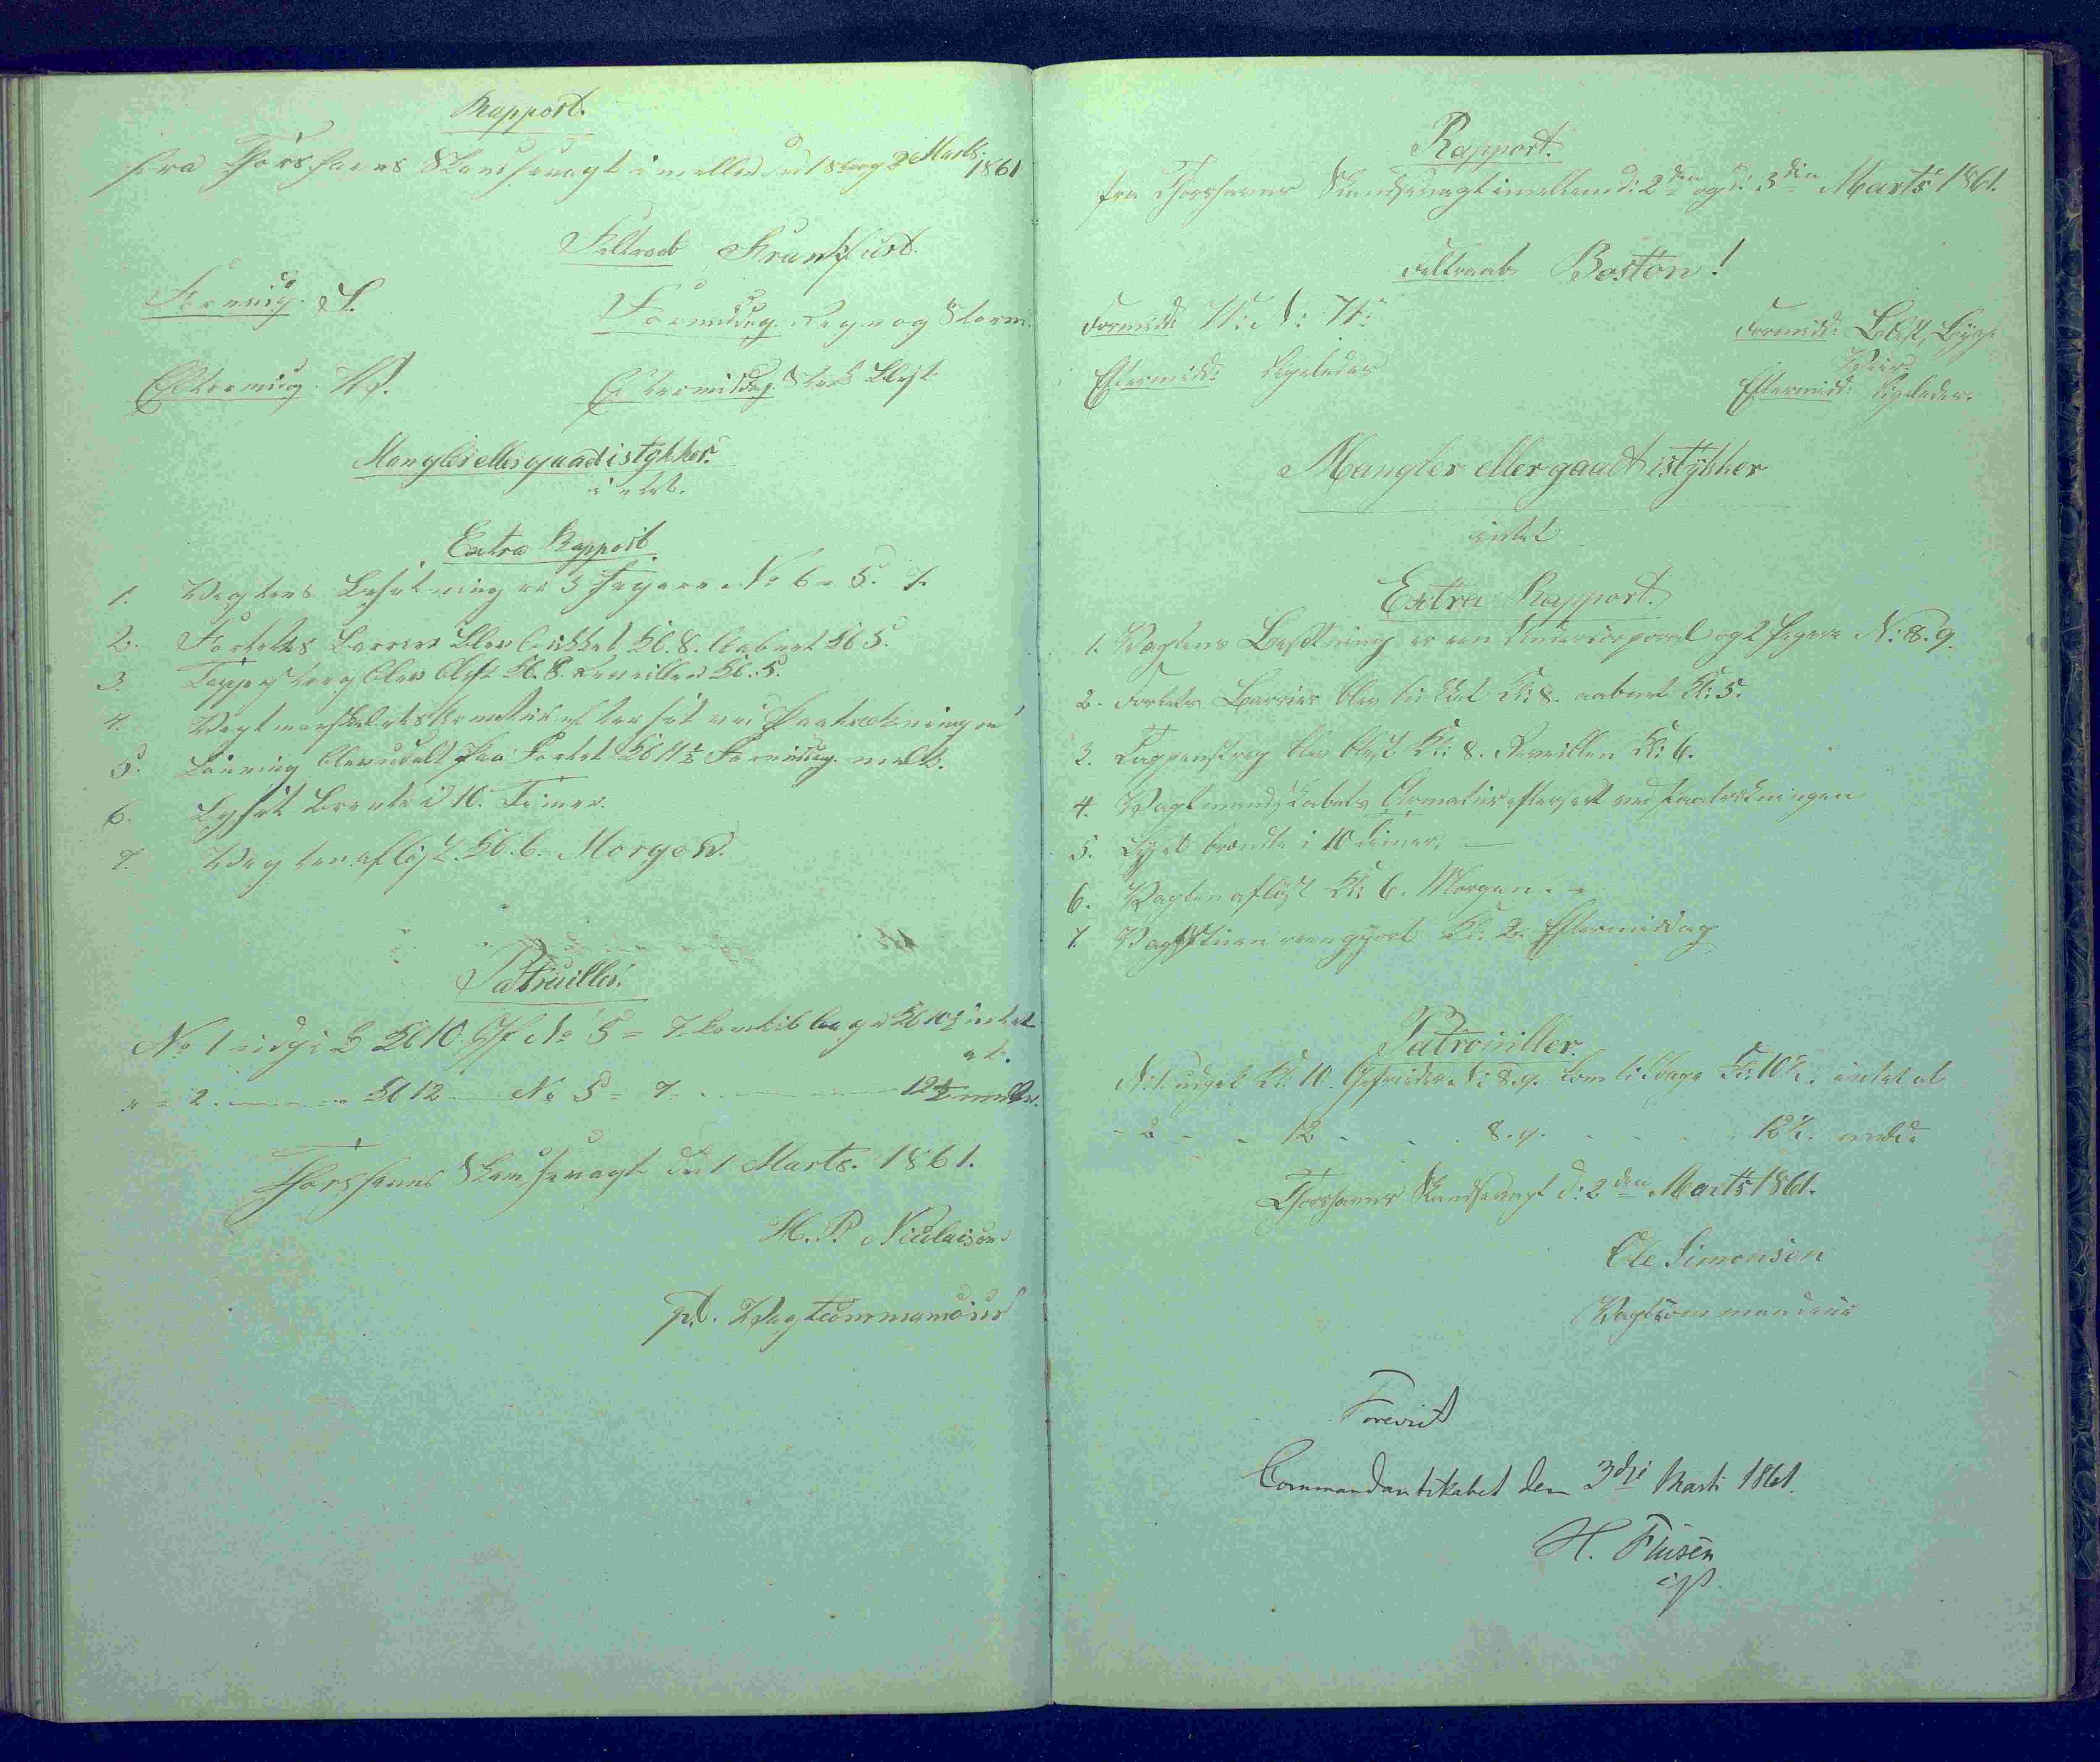 Rapport.
fra Thorshavns Skandsevagt imellem d 1ste og 2 Marts 1861
Feltraab Frankfurt
Formidg. S.
Formiddag. Regn og Storm.
Eftermidg. V.
Eftermiddag. Sterk Blest
Mangler eller gaaed istykker.
intet.
Extra Rapport
1. Vagtens Besetning er 3 Jegere No 6 = 5. 7.
2. Fortets Barrier blev lukket Kl. 8. Aabnet Kl 5.
3. Tappenstreg blev blest Kl. 8. Reveillen Kl. 5.
4. Vagtmandskabets Armatur efterset ved Paatrekningen
5. Lønning blev udelt paa Fortet Kl 11½ Formiddag
6. Lyset brente i 10. Timer.
7. Vagten afløst. Kl. 6. Morgen.
Patruiller.
No 1 udgik Kl 10. Gff No 5 = 7. kom tilbage Kl 10½ intet
at.
" = 2. Kl 12 No 5 = 7. 12½ melde.
Thorshavns Skandsevagt d 1 Marts. 1861.
H. P. Nicolaisen
p.t. Vagtcommandeur
Rapport.
fra Thorshavns Skandsevagt imellem d: 2den og d: 3din Marts 1861.
Feltraab Boston!
Formidd:
Formidd: Blest, Byge
Veir.
Eftermidd: ligeledes
Eftermidd: ligeledes.
Mangler eller gaaedt istykker
intet
Extra Rapport.
1. Vagtens Besetning er een Undercorporal og 2 Jegere N: 8. 9.
2. Fortets Barrier blev lukket Kl: 8. aabnet Kl: 5.
3. Tappenstreg blev blest Kl: 8. Reveillen Kl: 6.
4. Vagtmandskabets Armatur efterseet ved Paatrekningen
5. Lyset brændte i 10 Timer.
6. Vagten afløst Kl: 6. Morgen.
7. Vagtstuen reengjort Kl: 2. Eftermiddag
Patrouiller.
N: 1. udgik Kl: 10. Gefreider N: 8. 9. kom tilbage Kl: 10½. intet at
- 2 - - 12 - - - 8. 9. - - - - 12½. melde
Thorshavns Skandsevagt d: 2den Marts 1861.
Ole Simonsen
Vagtcommandeur
Foreviist
Commandantskabet den 3die Marts 1861.